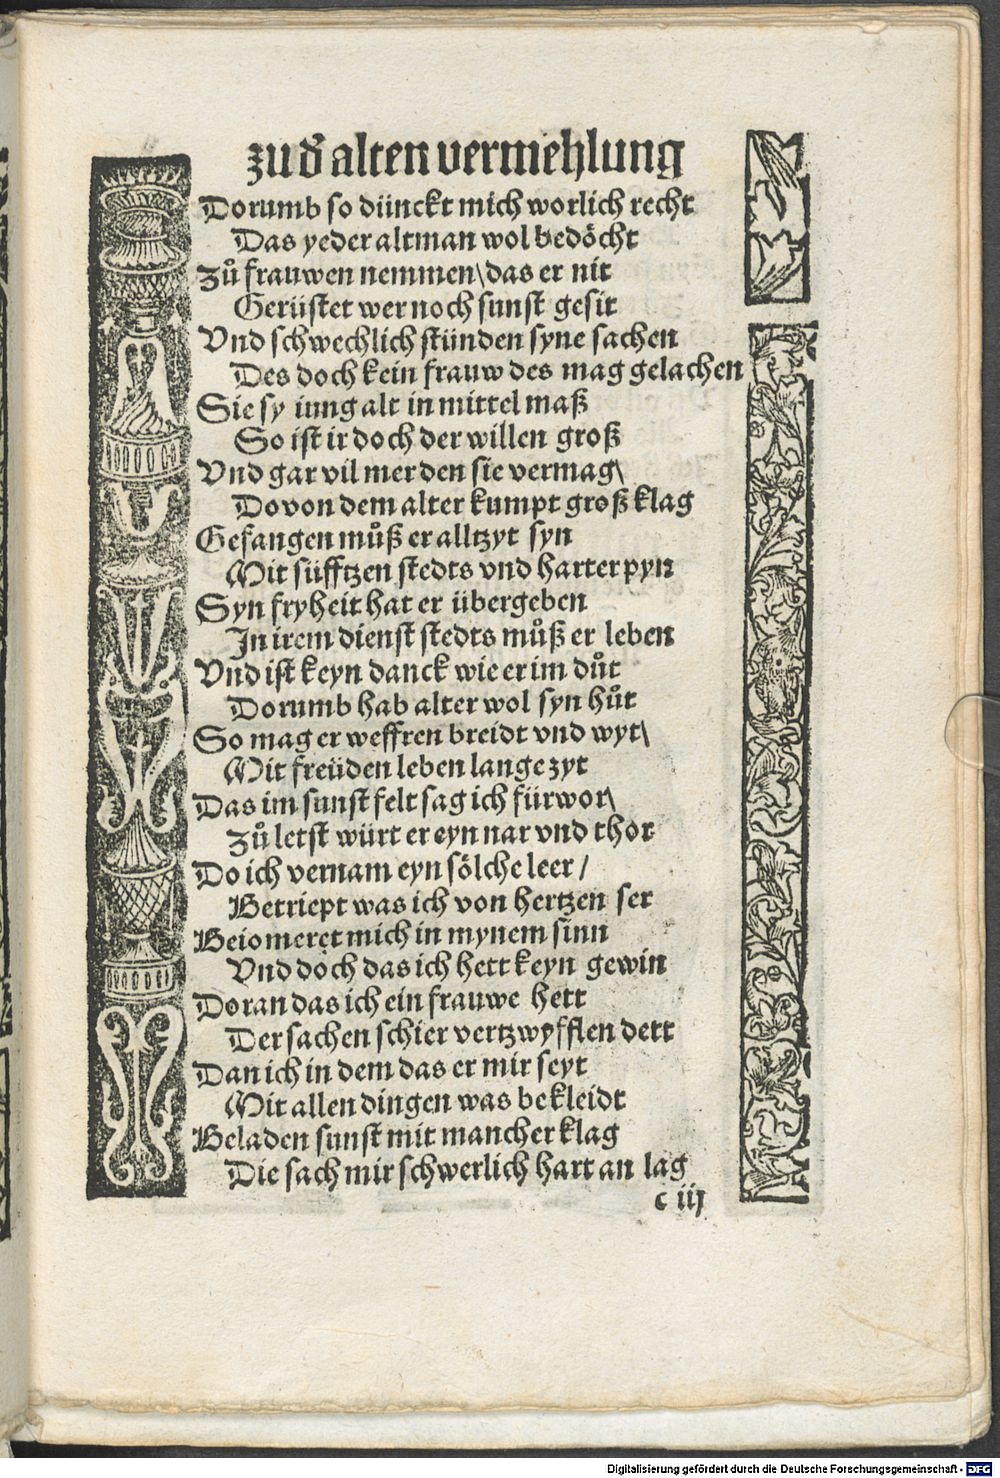 zu d̕ alten vermehlung
Dorumb so dünckt mich worlich recht
Das yeder altman wol bedöcht
Zů frauwen nemmen\ das er nit
Gerüstet wer noch sunst gesit
Vnd schwechlich stünden syne sachen
Des doch kein frauw des mag gelachen
Sie sy iung alt in mittel maß
So ist ir doch der willen groß
Vnd gar vil mer den sie vermag\
Dovon dem alter kumpt groß klag
Gefangen můß er alltzyt syn
Mit süfftzen stedts vnd harter pyn
Syn fryheit hat er übergeben
In irem dienst stedts můß er leben
Vnd ist keyn danck wie er im důt
Dorumb hab alter wol syn hůt
So mag er weffren breidt vnd wyt\
Mit freüden leben lange zyt
Das im sunst felt sag ich fürwor\
Zů letst würt er eyn nar vnd thor
Do ich vernam eyn sölche leer /
Betriept was ich von hertzen ser
Beiomeret mich in mynem sinn
Vnd doch das ich hett keyn gewin
Doran das ich ein frauwe hett
Der sachen schier vertzwyfflen dett
Dan ich in dem das er mir seyt
Mit allen dingen was bekleidt
Beladen sunst mit mancher klag
Die sach mir schwerlich hart an lag
c iij
Digitalisierung gefördert durch die Deutsche Forschungsgemeinschaft - DFG